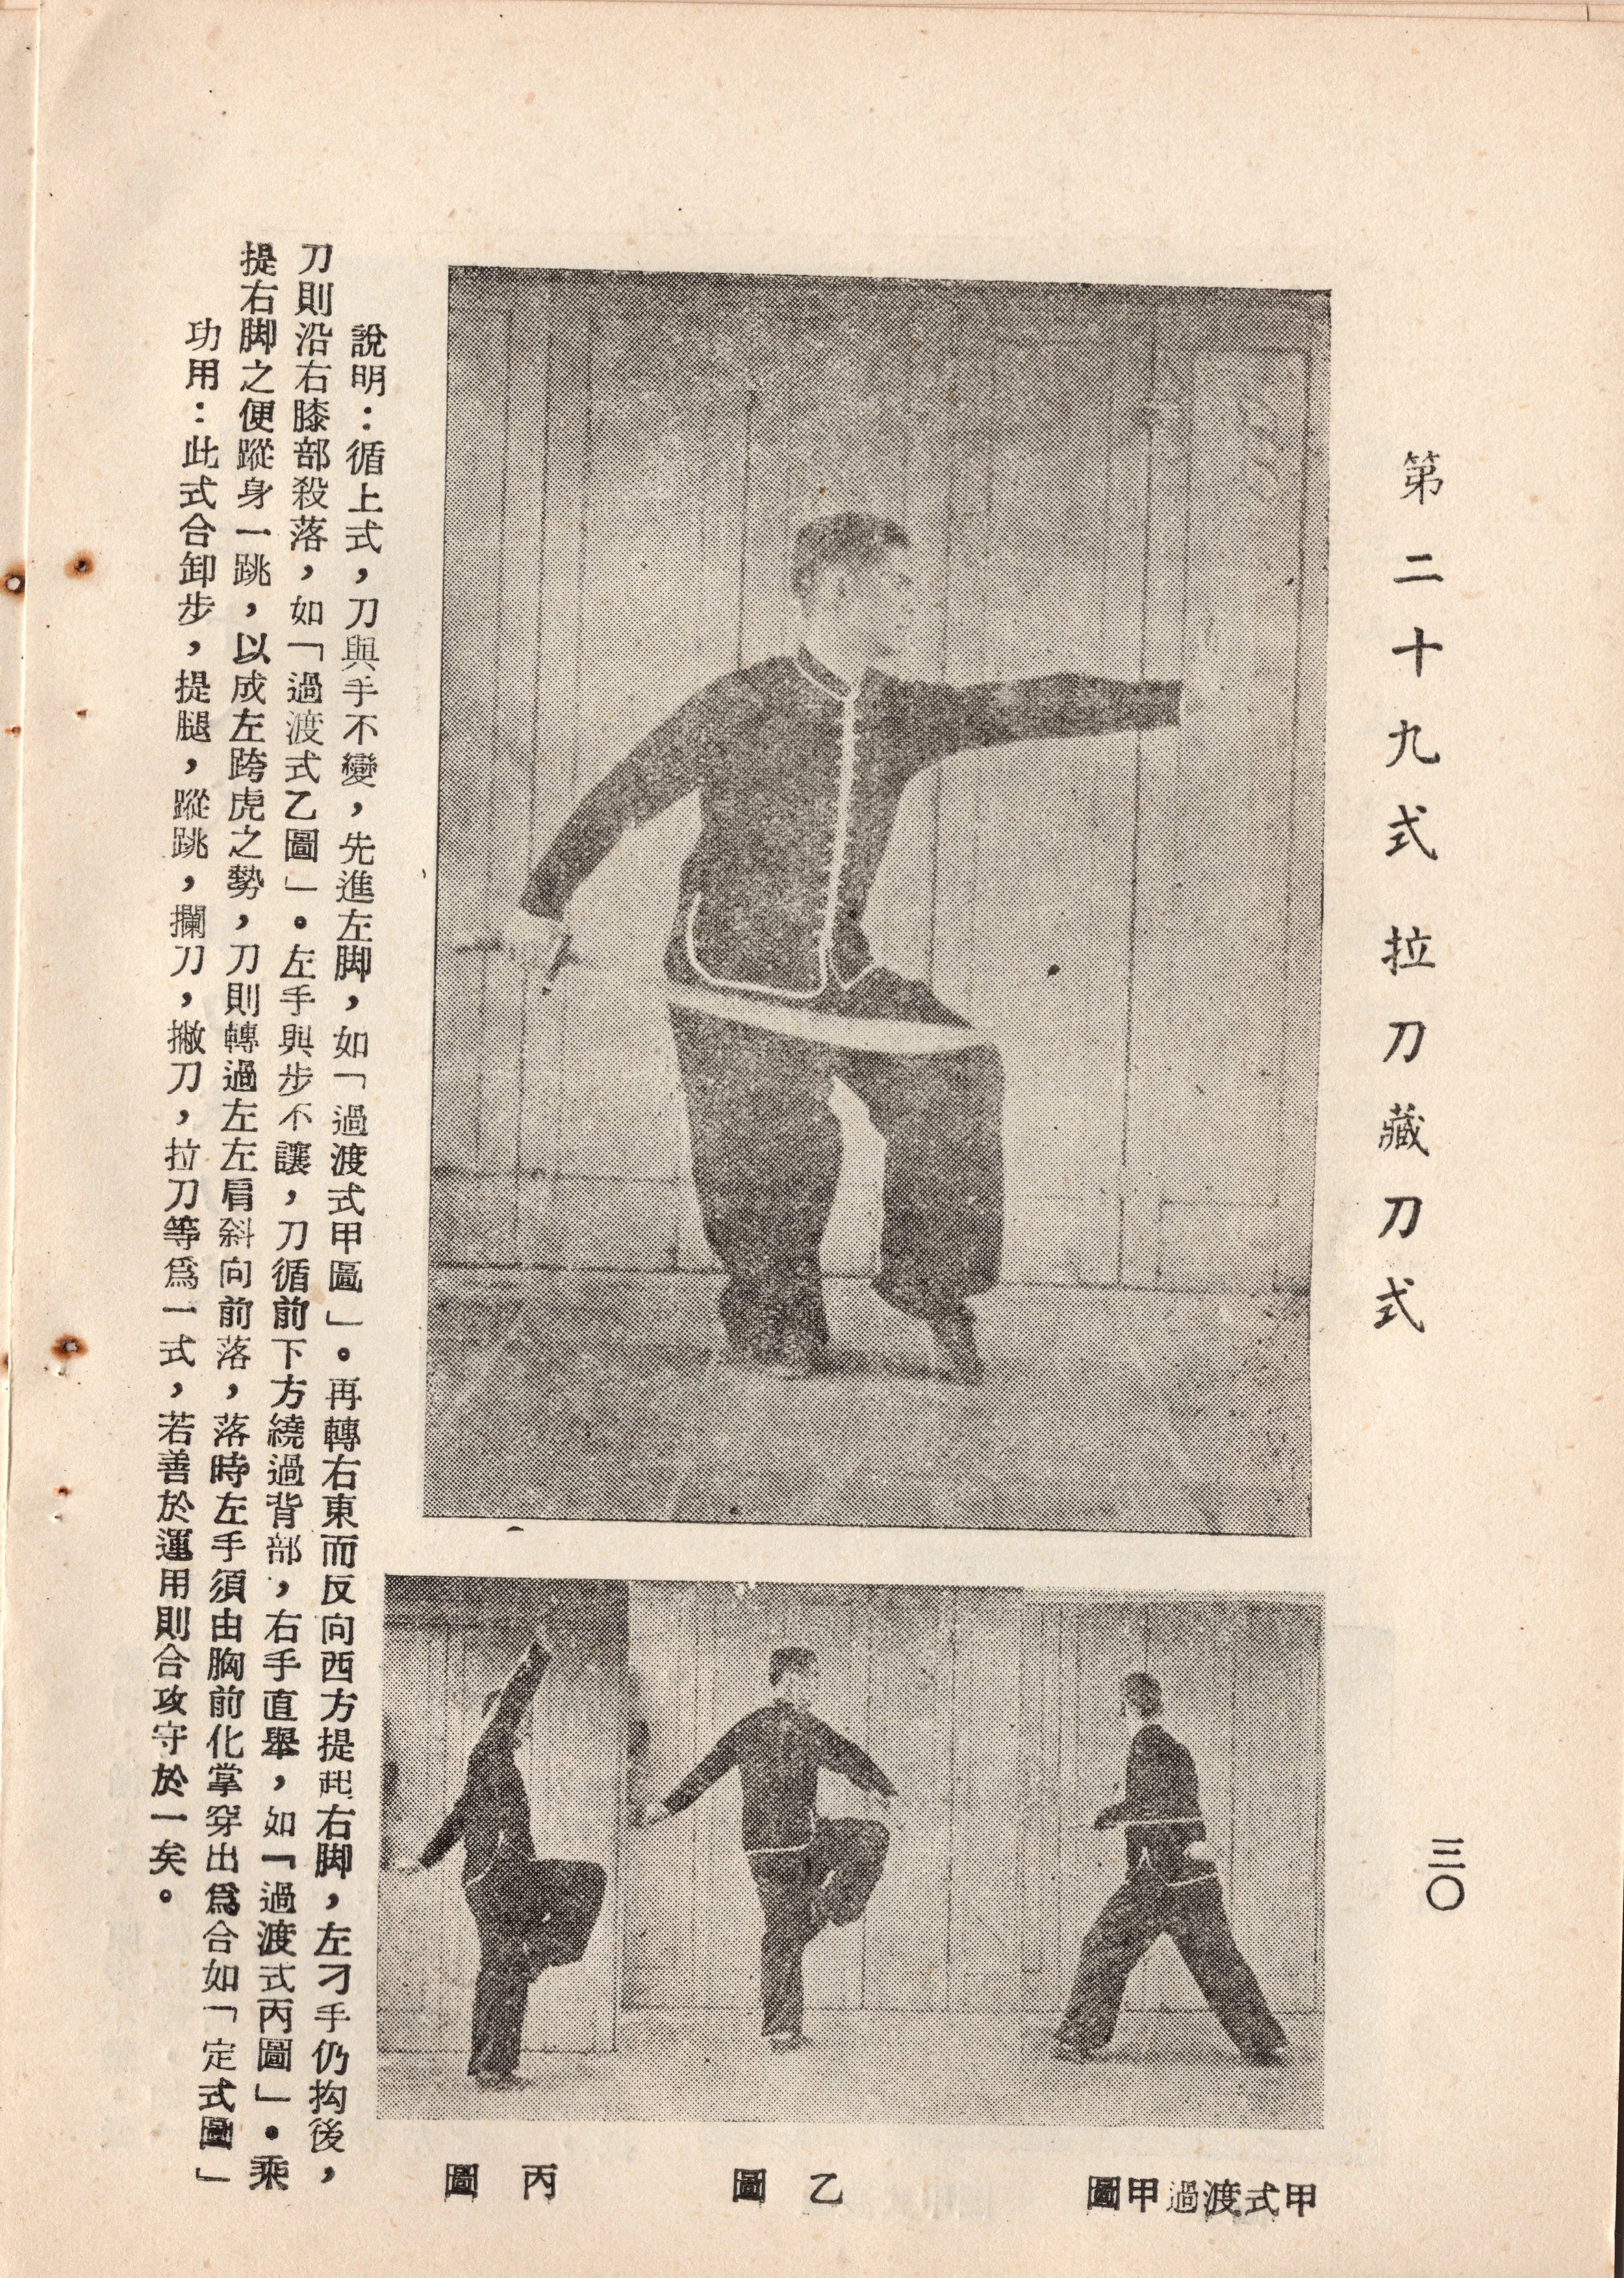 第二十九式 拉刀藏刀式
三〇
甲式渡過甲圖
乙圖
丙圖
說明：循上式，刀與手不變，先進左脚，如「過渡式甲圖」。再轉右東而反向西方提起右脚，左刁手仍抅後，
刀則沿右膝部殺落，如「過渡式乙圖」。左手與步不讓，刀循前下方繞過背部，右手直舉，如「過渡式丙圖」。乘
提右脚之便蹤身一跳，以成左跨虎之勢，刀則轉過左左肩斜向前落，落時左手須由胸前化掌穿出爲合如「定式圖」
功用：此式合卸步，提腿，蹤跳，攔刀，撇刀，拉刀等爲一式，若善於運用則合攻守於一矣。